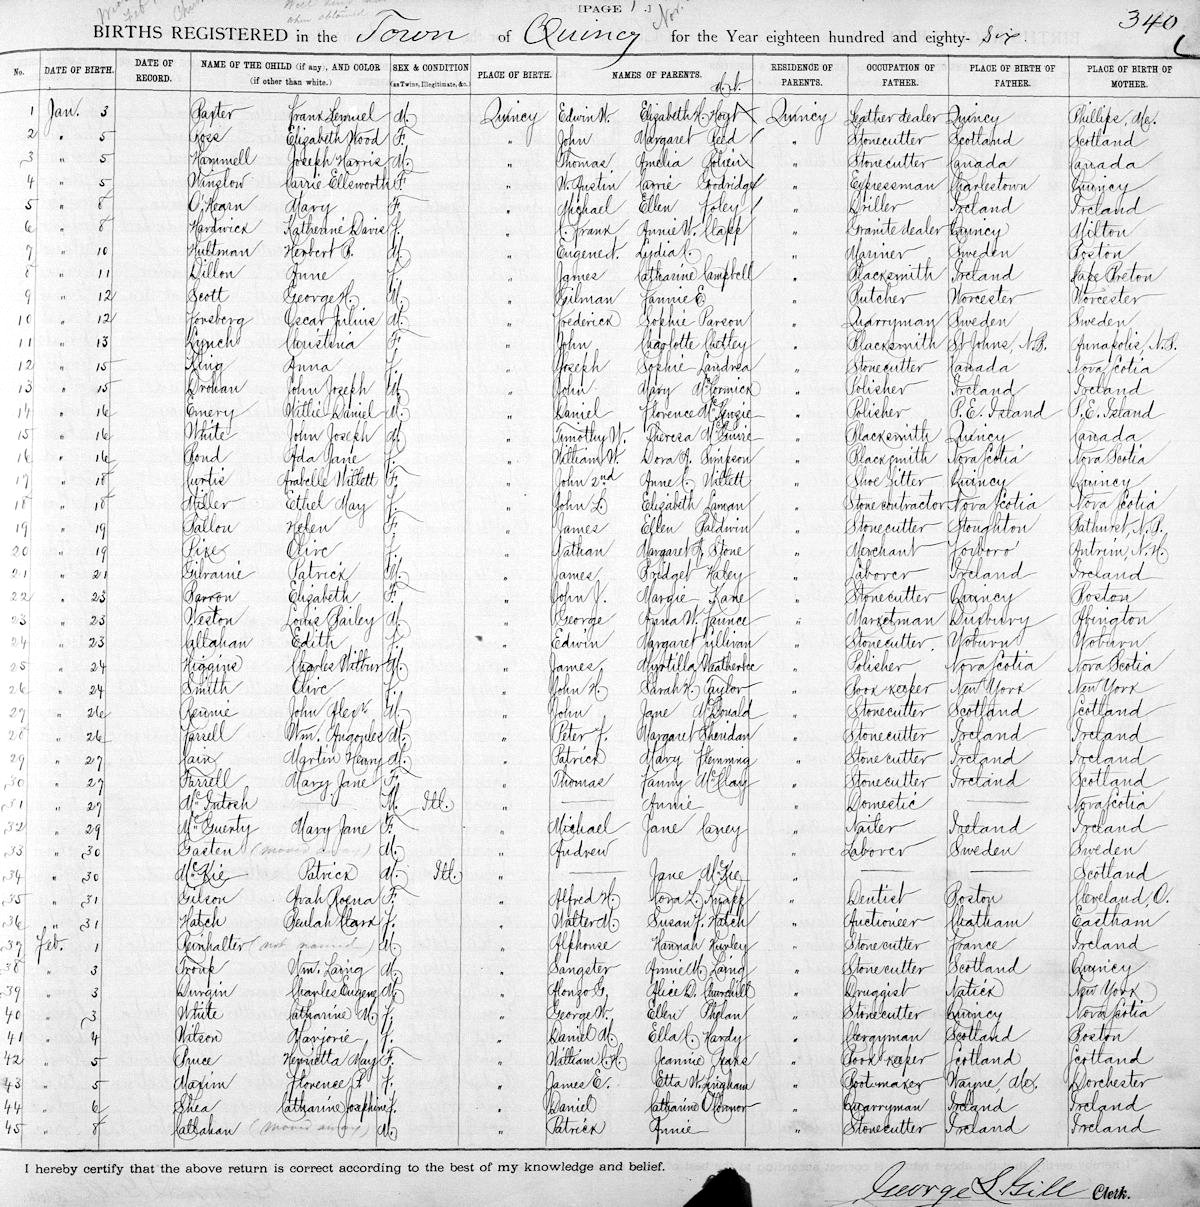 [PAGE ] Nov. 340
when obtained
BIRTHS REGISTERED in the Town of Quincy for the Year eighteen hundred and eighty- Six.
No. DATE OF BIRTH. DATE OF RECORD. NAME OF THE CHILD (if any), AND COLOR (if other than white.) SEX & CONDITION (as Twins, Illegitimate, &c.) PLACE OF BIRTH. NAMES OF PARENTS. RESIDENCE OF PARENTS. OCCUPATION OF FATHER. PLACE OF BIRTH OF FATHER. PLACE OF BIRTH OF MOTHER.
1 Jan. 3 Baxter Frank Lemuel M. Quincy Edwin W. Elizabeth H. Hoyt Quincy Leather dealer Quincy Phillips, Me.
2 " 5 Goss Elizabeth Wood F. " John Margaret Reed " Stonecutter Scotland Scotland
3 " 5 Hammell Joseph Harris M. " Thomas Amelia " Stonecutter Canada Canada
4 " 5 Winslow Carrie Ellsworth F. " W. Austin Carrie Goodridge " Expressman Charlestown Quincy
5 " 8 O'Hearn Mary F. " Michael Ellen Foley " Driller Ireland Ireland
6 " 8 Hardwick Katherine Davis F. " C. Frank Annie W. Clapp " Granite dealer Quincy Milton
7 " 10 Hultman Herbert B. M. " Eugene Lydia " Mariner Sweden Boston
8 " 11 Dillon Anne F. " James Catharine Campbell " Blacksmith Ireland Cape Breton
9 " 12 Scott George H. M. " Gilman Fannie E. " Butcher Worcester Worcester
10 " 12 Forsberg Oscar Julius M. " Frederick Sophie Parson " Quarryman Sweden Sweden
11 " 13 Lynch Christina F. " John Charlotte " Blacksmith St Johns, N.B. Annapolis, N.S.
12 " 15 King Anna F. " Joseph Sophie Landrea " Stonecutter Canada Nova Scotia
13 " 15 Drohan John Joseph M. " John Mary McCormick " Polisher Ireland Ireland
14 " 16 Emery Willie Daniel M. " Daniel Florence McKenzie " Polisher P.E. Island P.E. Island
15 " 16 White John Joseph M. " Timothy W. Theresa McGuire " Blacksmith Quincy Canada
16 " 16 Bond Ada Jane F. " William W. Dora A. Simpson " Blacksmith Nova Scotia Nova Scotia
17 " 18 Curtis Arabelle Willett F. " John 2nd Anne C. Willett " Shoe fitter Quincy Quincy
18 " 18 Miller Ethel May F. " John L. Elizabeth Laman " Stone contractor Nova Scotia Nova Scotia
19 " 19 Fallon Helen F. " James Ellen Baldwin " Stonecutter Stoughton Bathurst, N.B.
20 " 19 Pike Olive F. " Nathan Margaret A. Stone " Merchant Foxboro Antrim, N.H.
21 " 21 Gilraine Patrick M. " James Bridget Haley " Laborer Ireland Ireland
22 " 23 Barron Elizabeth F. " John J. Margie Kane " Stonecutter Quincy Boston
23 " 23 Weston Louis Bailey M. " George Anna W. Faunce " Marketman Duxbury Abington
24 " 23 Callahan Edith F. " Edwin Margaret Sullivan " Stonecutter Woburn Woburn
25 " 24 Higgins Charles Wilbur M. " James Myrtilla Weatherbee " Polisher Nova Scotia Nova Scotia
26 " 24 Smith Olive F. " John H. Sarah H. Taylor " Book keeper New York New York
27 " 26 Rennie John Alex. M. " John Jane McDonald " Stonecutter Scotland Scotland
28 " 26 Farrell Wm. M. " Peter F. Margaret Sheridan " Stonecutter Ireland Ireland
29 " 27 Cain Martin Henry M. " Patrick Mary Flemming " Stonecutter Ireland Ireland
30 " 27 Farrell Mary Jane F. " Thomas Fanny McCraig " Stonecutter Ireland Scotland
31 " 27 McIntosh —— M. Itl. " —— Annie Domestic —— Nova Scotia
32 " 29 McGuerty Mary Jane F. " Michael Jane Caney " Nailer Ireland Ireland
33 " 30 Gasten (moved away) M. " Andrew " Laborer Sweden Sweden
34 " 30 McKie Patrick M. Itl. " —— Jane McKie " —— —— Scotland
35 " 31 Gilson Avah Roena F. " Alfred H. Nora L. Knapp " Dentist Boston Cleveland, O.
36 " 31 Hatch Beulah Clark F. " Walter M. Susan J. Hatch " Auctioneer Chatham Eastham
37 Feb. 1 Reinhalter (not named) M. " Alphonse Hannah Hurley " Stonecutter France Ireland
38 " 3 Troup Wm. Laing M. " Sangster Annie M. Laing " Stonecutter Scotland Quincy
39 " 3 Durgin Charles Eugene M. " Alonzo G. Alice D. Churchill " Druggist Natick New York
40 " 3 White Catharine M. F. " George W. Ellen Phelan " Stonecutter Quincy Nova Scotia
41 " 4 Wilson Marjorie F. " Daniel M. Ella C. Hardy " Clergyman Scotland Boston
42 " 5 Bruce Henrietta May F. " William C.H. Jeannie Craik " Book keeper Scotland Scotland
43 " 5 Maxim Florence B. F. " James E. Etta W. Bingham " Bootmaker Wayne, Me. Dorchester
44 " 6 Shea Catharine Josephine F. " Daniel Catharine O'Connor " Quarryman Ireland Ireland
45 " 8 Callahan (moved away) M. " Patrick Annie " Stonecutter Ireland Ireland
I hereby certify that the above return is correct according to the best of my knowledge and belief.
George L. Gill Clerk.